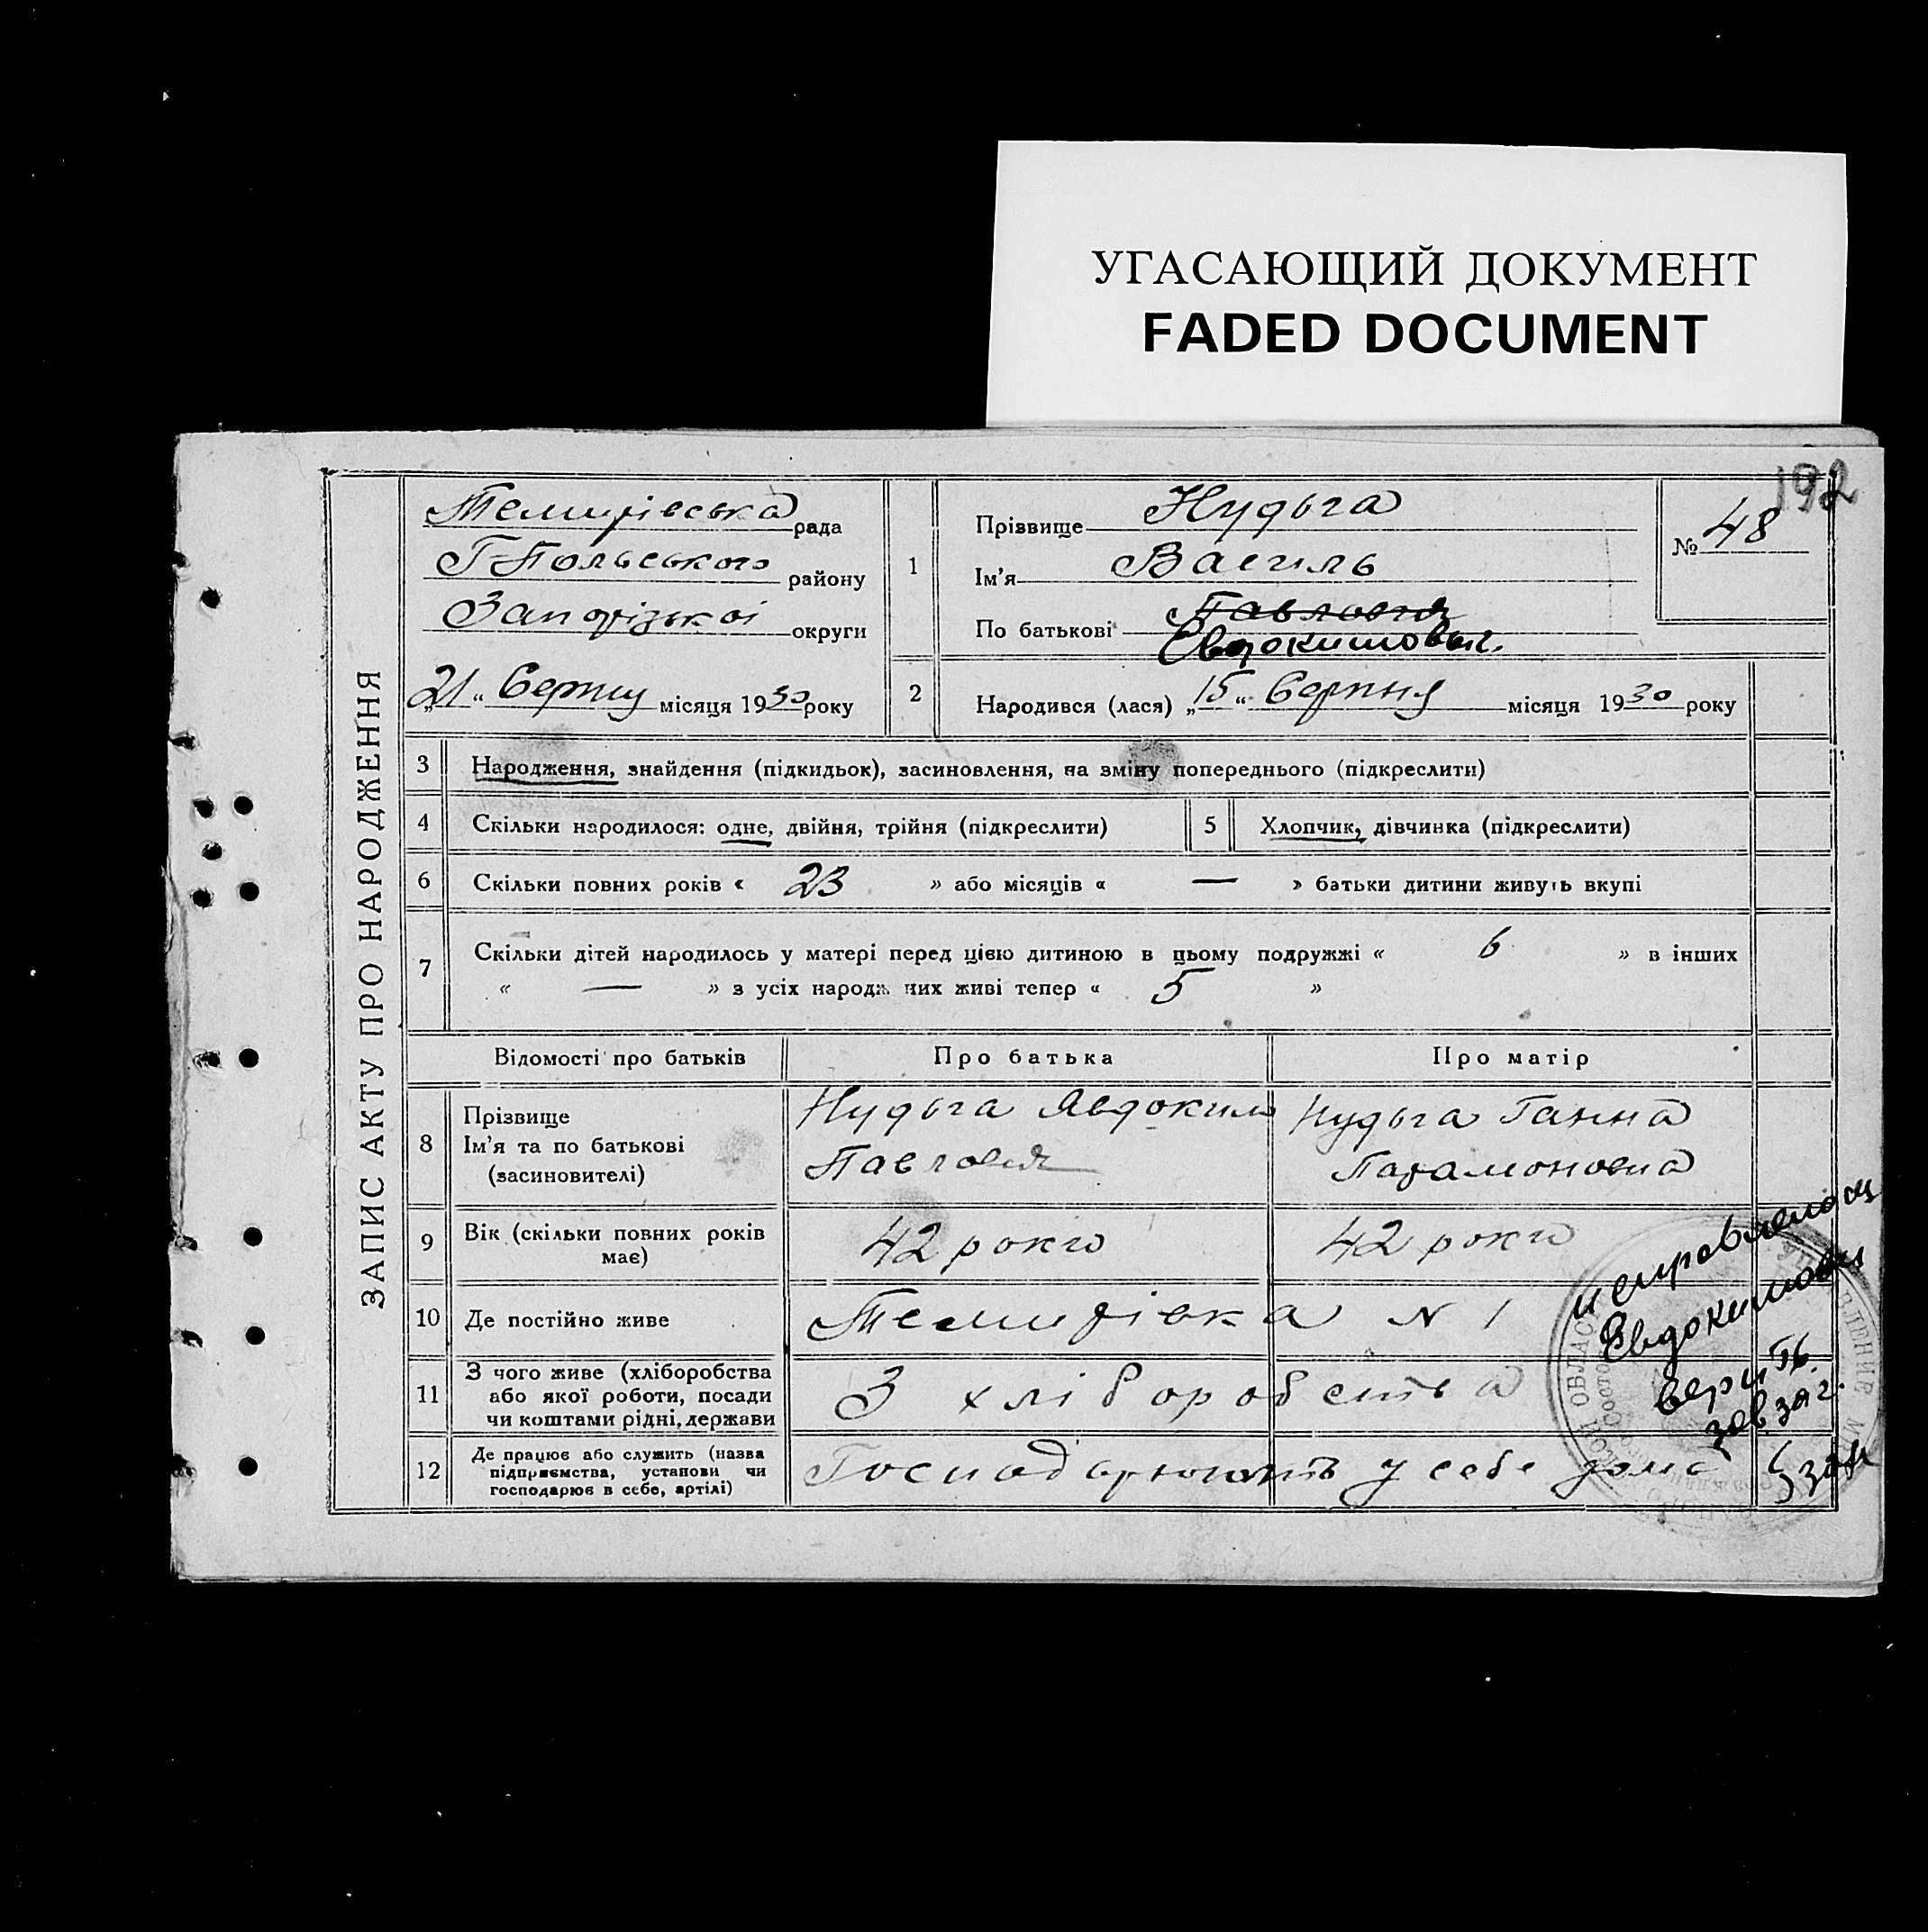 УГАСАЮЩИЙ ДОКУМЕНТ
FADED DOCUMENT
192
ЗАПИС АКТУ ПРО НАРОДЖЕННЯ
Темирівська рада
Г-Польського району
Запорізької округи
„21“ Серпня місяця 1930 року
1
Прізвище Нудьга
Ім'я Василь
По батькові Павлович
Евдокимович.
№ 48
2 Народився (лася) „15“ Серпня місяця 1930 року
3 Народження, знайдення (підкидьок), засиновлення, на зміну попереднього (підкреслити)
4 Скільки народилося: одне, двійня, трійня (підкреслити)
5 Хлопчик, дівчинка (підкреслити)
6 Скільки повних років « 23 » або місяців « — » батьки дитини живуть вкупі
7 Скільки дітей народилось у матері перед цією дитиною в цьому подружжі « 6 » в інших
« — » з усіх народжених живі тепер « 5 »
Відомості про батьків Про батька Про матір
8 Прізвище
Ім'я та по батькові
(засиновителі)
Нудьга Явдоким
Павлович
Нудьга Ганна
Парамоновна
9 Вік (скільки повних років
має)
42 роки 42 роки
10 Де постійно живе Темирівка N 1
11 З чого живе (хліборобства
або якої роботи, посади
чи коштами рідні, держави
З хліборобства
12 Де працює або служить (назва
підприємства, установи чи
господарює в себе, артілі)
Господарюють у себе дома
Евдокимович
верить
зав заг.